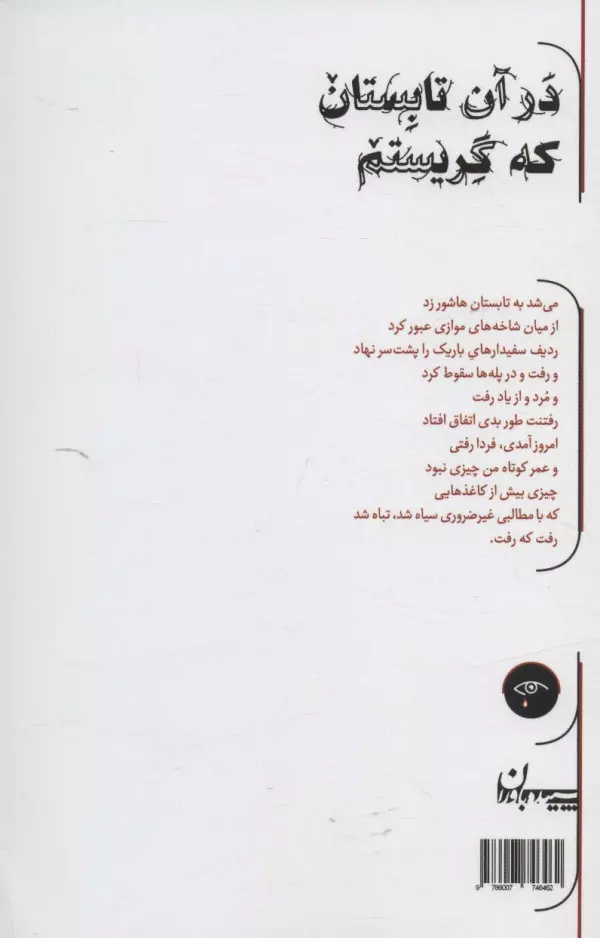 دَر آن تابِستان
که گِریستم
می‌شد به تابستان هاشور زد
از میان شاخه‌های موازی عبور کرد
ردیف سفیدارهایِ باریک را پشت‌سر نهاد
و رفت و در پله‌ها سقوط کرد
و مُرد و از یاد رفت
رفتنت طور بدی اتفاق افتاد
امروز آمدی، فردا رفتی
و عمر کوتاه من چیزی نبود
چیزی بیش از کاغذهایی
که با مطالبی غیرضروری سیاه شد، تباه شد
رفت که رفت.
سپیده‌باوران
9 786007 746462